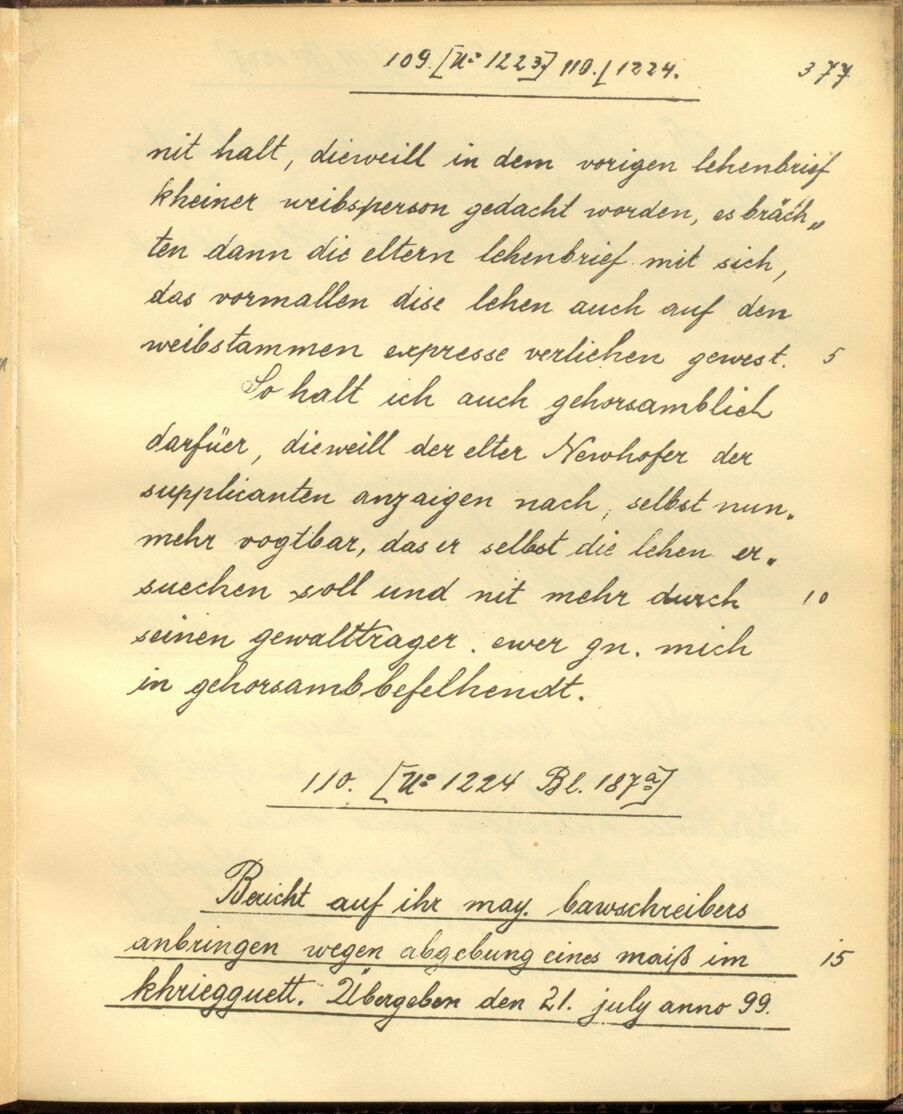 109. [No 1223] 110. [1224. 377
nit halt, dieweill in dem vorigen lehenbrief
kheiner weibsperson gedacht worden, es bräch„
ten dann die eltern lehenbrief mit sich,
das vormallen dise lehen auch auf den
weibstammen expresse verlichen gewest. 5
So halt ich auch gehorsamblich
darfüer, dieweill der elter Newhofer der
supplicanten anzaigen nach, selbst nun„
mehr vogtbar, das er selbst die lehen er„
suechen soll und nit mehr durch 10
seinen gewalttrager. ewer gn. mich
in gehorsamb befelhendt.
110. [No 1224 Bl. 187a]
Bericht auf ihr may. bawschreibers
anbringen wegen abgebung eines maiß im 15
khriegguett. Übergeben den 21. july anno 99.